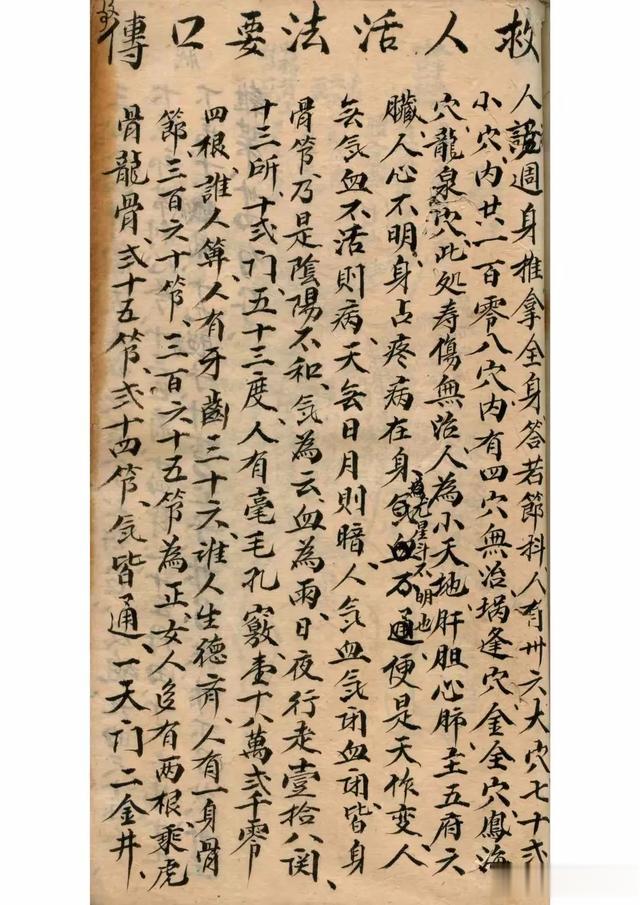 救人活法要口傳
人說週身推拿全身答若節科人有卅六大穴七十弍
小穴內共一百零八穴內有四穴無治堝逢穴金全穴鳳海
穴龍泉穴此处寿傷無治人為小天地肝胆心肺主五府六
臟人心不明身占疼病在身氣血不通便是天作变人
為尤星斗不明也
会氣血不活則病天会日月則暗人氣血氣闭血闭皆身
骨節乃是陰陽不和氣為云血為雨日夜行走壹拾八関
十三所十弍门五十三度人有毫毛孔竅壹十八萬弍千零
四根誰人算人有牙齒三十六誰人生德齐人有一身骨
節三百六十節三百六十五節為正女人召有两根乘虎
骨龍骨弍十五節弍十四節氣皆通一天门二金井